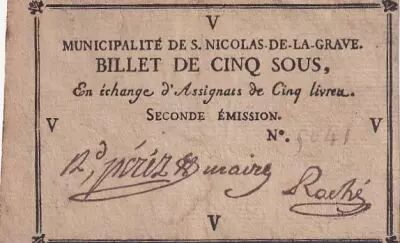 V
MUNICIPALITÉ DE S. NICOLAS-DE-LA-GRAVE.
BILLET DE CINQ SOUS,
En échange d'Assignats de Cinq livres.
V V
SECONDE ÉMISSION.
N°. 5041
pérèz maire
Roché
V